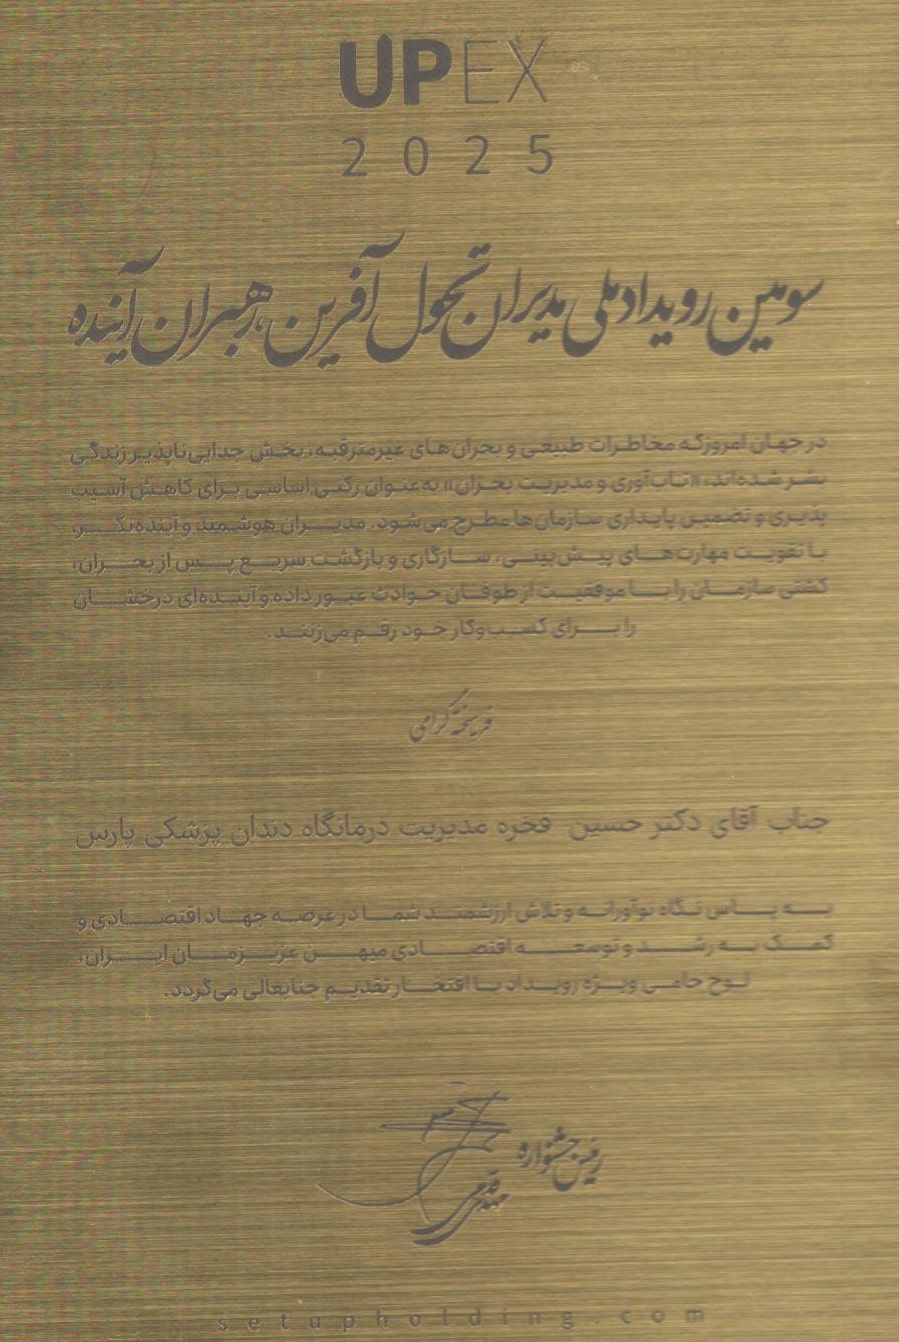 UPEX
2025
سومین رویداد ملی مدیران تحول آفرین، رهبران آینده
در جهان امروز که مخاطرات طبیعی و بحران‌های غیرمترقبه، بخش جدایی‌ناپذیر زندگی
بشر شده‌اند، «تاب‌آوری و مدیریت بحران» به‌عنوان رکنی اساسی برای کاهش آسیب
پذیری و تضمین پایداری سازمان‌ها مطرح می‌شود. مدیران هوشمند و آینده‌نگر،
با تقویت مهارت‌های پیش‌بینی، سازگاری و بازگشت سریع پس از بحران،
کشتی سازمان را با موفقیت از طوفان حوادث عبور داده و آینده‌ای درخشان
را برای کسب‌وکار خود رقم می‌زنند.
فریخته گرامی
جناب آقای دکتر حسین فخره مدیریت درمانگاه دندان پزشکی پارس
به پاس نگاه نوآورانه و تلاش ارزشمند شما در عرصه جهاد اقتصادی و
کمک به رشد و توسعه اقتصادی میهن عزیزمان ایران،
لوح حامی ویژه رویداد با افتخار تقدیم جنابعالی می‌گردد.
رئیس جشنواره
setupholding.com